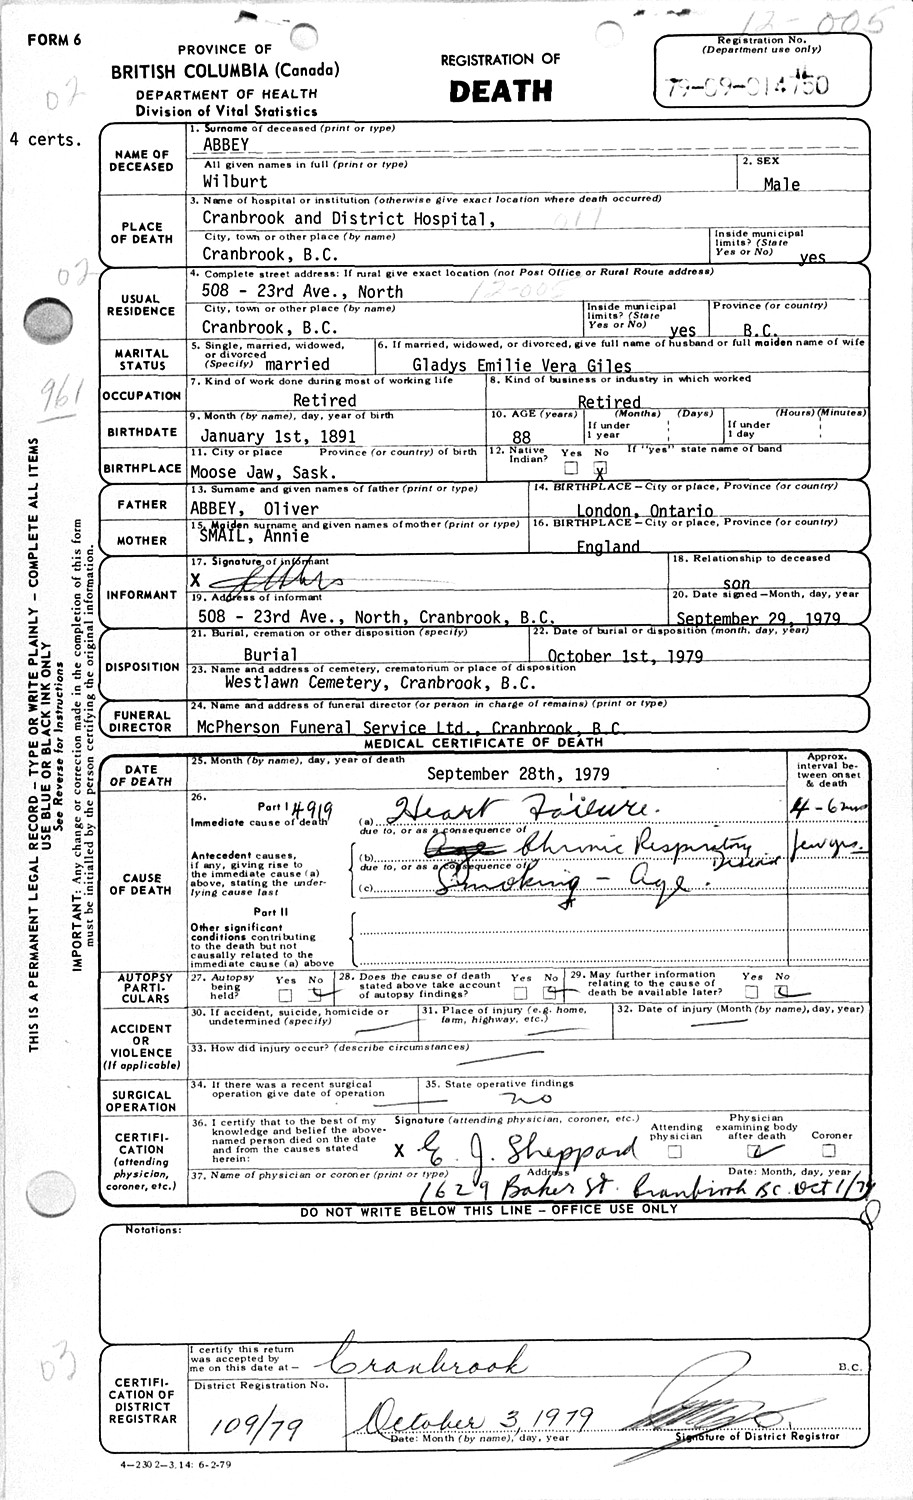 12-005
FORM 6
PROVINCE OF
BRITISH COLUMBIA (Canada)
DEPARTMENT OF HEALTH
Division of Vital Statistics
REGISTRATION OF
DEATH
Registration No.
(Department use only)
79-09-014750
02
4 certs.
NAME OF DECEASED
1. Surname of deceased (print or type)
ABBEY
All given names in full (print or type)
Wilburt
2. SEX
Male
PLACE OF DEATH
3. Name of hospital or institution (otherwise give exact location where death occurred)
Cranbrook and District Hospital,
011
City, town or other place (by name)
Cranbrook, B.C.
Inside municipal limits? (State Yes or No)
yes
02
USUAL RESIDENCE
4. Complete street address: If rural give exact location (not Post Office or Rural Route address)
508 - 23rd Ave., North
12-005
City, town or other place (by name)
Cranbrook, B.C.
Inside municipal limits? (State Yes or No)
yes
Province (or country)
B.C.
MARITAL STATUS
5. Single, married, widowed, or divorced (Specify)
married
6. If married, widowed, or divorced, give full name of husband or full maiden name of wife
Gladys Emilie Vera Giles
961
OCCUPATION
7. Kind of work done during most of working life
Retired
8. Kind of business or industry in which worked
Retired
BIRTHDATE
9. Month (by name), day, year of birth
January 1st, 1891
10. AGE (years)
88
(Months) (Days)
If under 1 year
(Hours) (Minutes)
If under 1 day
BIRTHPLACE
11. City or place Province (or country) of birth
Moose Jaw, Sask.
12. Native Indian?
Yes No
X
If "yes" state name of band
FATHER
13. Surname and given names of father (print or type)
ABBEY, Oliver
14. BIRTHPLACE – City or place, Province (or country)
London, Ontario
MOTHER
15. Maiden surname and given names of mother (print or type)
SMAIL, Annie
16. BIRTHPLACE – City or place, Province (or country)
England
INFORMANT
17. Signature of informant
X
18. Relationship to deceased
son
19. Address of informant
508 - 23rd Ave., North, Cranbrook, B.C.
20. Date signed – Month, day, year
September 29, 1979
DISPOSITION
21. Burial, cremation or other disposition (specify)
Burial
22. Date of burial or disposition (month, day, year)
October 1st, 1979
23. Name and address of cemetery, crematorium or place of disposition
Westlawn Cemetery, Cranbrook, B.C.
FUNERAL DIRECTOR
24. Name and address of funeral director (or person in charge of remains) (print or type)
McPherson Funeral Service Ltd., Cranbrook, B.C.
THIS IS A PERMANENT LEGAL RECORD – TYPE OR WRITE PLAINLY – COMPLETE ALL ITEMS
USE BLUE OR BLACK INK ONLY
See Reverse for Instructions
IMPORTANT: Any change or correction made in the completion of this form
must be initialled by the person certifying the original information.
MEDICAL CERTIFICATE OF DEATH
DATE OF DEATH
25. Month (by name), day, year of death
September 28th, 1979
Approx. interval between onset & death
CAUSE OF DEATH
26.
Part I 4919
Immediate cause of death
(a) Heart Failure.
4-6
due to, or as a consequence of
Antecedent causes, if any, giving rise to the immediate cause (a) above, stating the underlying cause last
(b) Age Chronic Respiratory Disease
few yrs.
due to, or as a consequence of
(c) Smoking - Age.
Part II
Other significant conditions contributing to the death but not causally related to the immediate cause (a) above
AUTOPSY PARTICULARS
27. Autopsy being held?
Yes No
28. Does the cause of death stated above take account of autopsy findings?
Yes No
29. May further information relating to the cause of death be available later?
Yes No
ACCIDENT OR VIOLENCE (If applicable)
30. If accident, suicide, homicide or undetermined (specify)
31. Place of injury (e.g. home, farm, highway, etc.)
32. Date of injury (Month (by name), day, year)
33. How did injury occur? (describe circumstances)
SURGICAL OPERATION
34. If there was a recent surgical operation give date of operation
35. State operative findings
no
CERTIFICATION (attending physician, coroner, etc.)
36. I certify that to the best of my knowledge and belief the above-named person died on the date and from the causes stated herein:
Signature (attending physician, coroner, etc.)
X E. J. Sheppard
Attending physician
Physician examining body after death
Coroner
37. Name of physician or coroner (print or type)
Address
Date: Month, day, year
1629 Baker St. Cranbrook BC. Oct 1/79
DO NOT WRITE BELOW THIS LINE – OFFICE USE ONLY
Notations:
03
CERTIFICATION OF DISTRICT REGISTRAR
I certify this return was accepted by me on this date at –
Cranbrook
B.C.
District Registration No.
109/79
October 3, 1979
Date: Month (by name), day, year
Signature of District Registrar
4-2302-3.14: 6-2-79